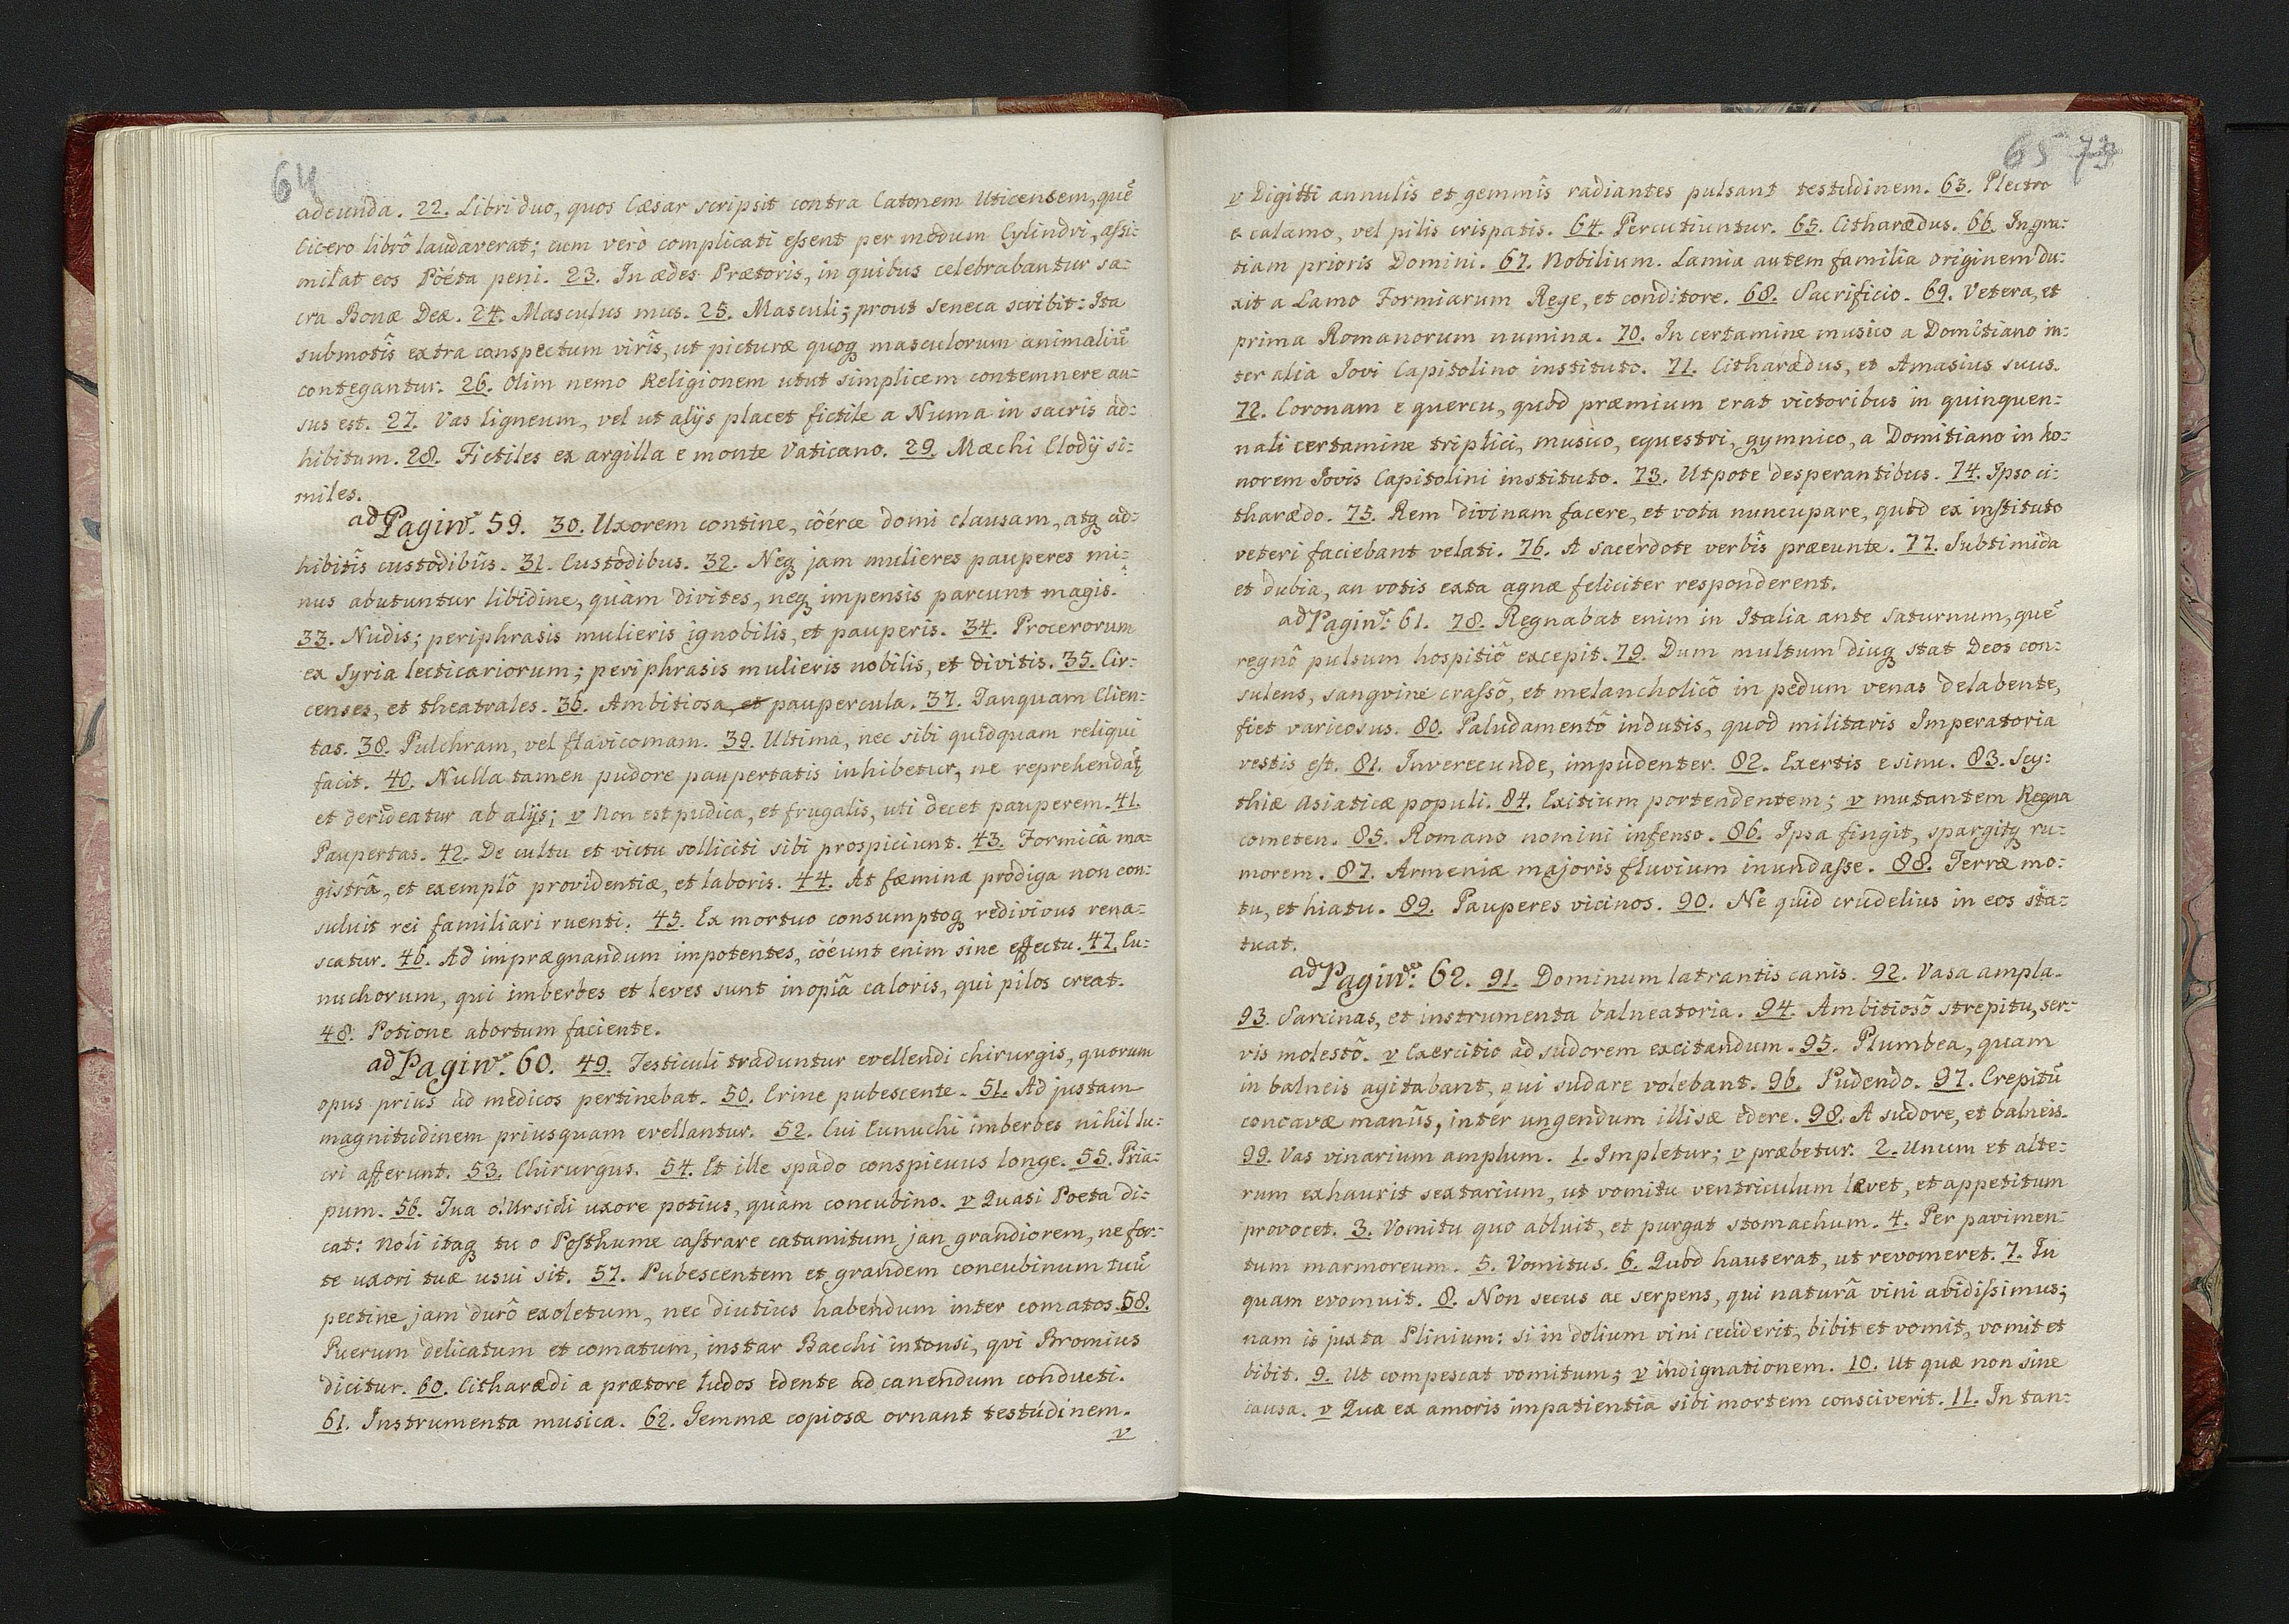 64
adeunda. 22. Libri duo, quos Cæsar scripsit contra Catonem Uticensem, quẽ
Cicero librô laudaverat; cum verò complicati essent per modum Cylindri, assi-
milat eos Poéta peni. 23. In ædes Prætoris, in quibus celebrabantur sa-
cra Bonæ Deæ. 24. Masculus mus. 25. Masculi; prout Seneca scribit: Ita
submotîs extra conspectum virîs, ut picturæ quoq masculorum animaliũ
contegantur. 26. Olim nemo Religionem utut simplicem contemnere au-
sus est. 27. Vas ligneum, vel ut alijs placet fictile a Numa in sacris ad-
hibitum. 28. Fictiles ex argilla e monte Vaticano. 29. Mæchi Clodij si-
miles.
ad Pagin. 59. 30. Uxorem contine, cöérce domi clausam, atq ad-
hibitîs custodibûs. 31. Custodibus. 32. Neq jam mulieres pauperes mi-
nus abutuntur libidine, quàm divites, neq impensis parcunt magis.
33. Nudis; periphrasis mulieris ignobilis, et pauperis. 34. Procerorum
ex Syria lecticariorum; periphrasis mulieris nobilis, et divitis. 35. Cir-
censes, et theatrales. 36. Ambitiosa, et paupercula. 37. Tanquam Clien-
tas. 38. Pulchram, vel flavicomam. 39. Ultima, nec sibi quidquam reliqui
facit. 40. Nulla tamen pudore paupertatis inhibetur, ne reprehendat̃
et derideatur ab alijs; v Non est pudica, et frugalis, uti decet pauperem. 41.
Paupertas. 42. De cultu et victu solliciti sibi prospiciunt. 43. Formicâ ma-
gistrâ, et exemplô providentiæ, et laboris. 44. At fæmina prodiga non con-
suluit rei familiari ruenti. 45. Ex mortuo consumptoq redivivus rena-
scatur. 46. Ad imprægnandum impotentes, cöéunt enim sine effectu. 47. Eu-
nuchorum, qui imberbes et leves sunt inopiâ caloris, qui pilos creat.
48. Potione abortum faciente.
ad Pagin. 60. 49. Testiculi traduntur evellendi chirurgis, quorum
opus prius ad medicos pertinebat. 50. Crine pubescente. 51. Ad justam
magnitudinem priusquam evellantur. 52. Cui Eunuchi imberbes nihil lu-
cri afferunt. 53. Chirurgus. 54. Et ille spado conspicuus longe. 55. Pria-
pum. 56. Tua ô! Ursidi uxore potius, quàm concubino. v Quasi Poeta di-
cat: Noli itaq tu o Posthume castrare catamitum jan grandiorem, ne for-
te uxori tuæ usui sit. 57. Pubescentem et grandem concubinum tuũ
pectine jam durô exoletum, nec diutius habendum inter comatos. 58.
Puerum delicatum et comatum, instar Bacchi intonsi, qvi Bromius
dicitur. 60. Citharædi a prætore ludos edente ad canendum conducti.
61. Instrumenta musica. 62. Gemmæ copiosæ ornant testúdinem.
v
65 73
v Digitti annulîs et gemmîs radiantes pulsant testudinem. 63. Plectro
e calamo, vel pilis crispatis. 64. Percutiuntur. 65. Citharædus. 66. In gra-
tiam prioris Domini. 67. Nobilium. Lamia autem familia originem du-
xit a Lamo Formiarum Rege, et conditore. 68. Sacrificio. 69. Vetera, et
prima Romanorum numina. 70. In certamine musico a Domitiano in-
ter alia Jovi Capitolino instituto. 71. Citharædus, et Amasius suus.
72. Coronam e quercu, quòd præmium erat victoribus in quinquen-
nali certamine triplici, musico, equestri, gymnico, a Domitiano in ho-
norem Jovis Capitolini instituto. 73. Utpote desperantibus. 74. Ipso ci-
tharædo. 75. Rem divinam facere, et vota nuncupare, quòd ex instituto
veteri faciebant velati. 76. A sacerdote verbîs præeunte. 77. Subtimida
et dubia, an votis exta agnæ feliciter responderent.
ad Pagin. 61. 78. Regnabat enim in Italia ante Saturnum, quẽ
regnô pulsum hospitiô excepit. 79. Dum multum diuq stat Deos con-
sulens, sangvine crassô, et melancholicô in pedum venas delabente,
fiet varicosus. 80. Paludamentô indutis, quod militaris Imperatoria
vestis est. 81. Inverecunde, impudenter. 82. Exertis e sinu. 83. Scy-
thiæ Asiaticæ populi. 84. Exitium portendentem; v mutantem Regna
cometen. 85. Romano nomini infenso. 86. Ipsa fingit, spargitq ru-
morem. 87. Armeniæ majoris fluvium inundasse. 88. Terræ mo-
tu, et hiatu. 89. Pauperes vicinos. 90. Ne quid crudelius in eos sta-
tuat.
ad Pagin. 62. 91. Dominum latrantis canis. 92. Vasa ampla.
93. Sarcinas, et instrumenta balneatoria. 94. Ambitiosô strepitu, ser-
vis molestô. v Exercitio ad sudorem excitandum. 95. Plumbea, quam
in balneis agitabant, qui sudare volebant. 96. Pudendo. 97. Crepitũ
concavæ manûs, inter ungendum illisæ edere. 98. A sudore, et balneis.
99. Vas vinarium amplum. 1. Impletur; v præbetur. 2. Unum et alte-
rum exhaurit sextarium, ut vomitu ventriculum lavet, et appetitum
provocet. 3. Vomitu quo abluit, et purgat stomachum. 4. Per pavimen-
tum marmoreum. 5. Vomitus. 6. Quòd hauserat, ut revomeret. 7. In
quam evomuit. 8. Non secus ac serpens, qui naturâ vini avidissimus;
nam is juxta Plinium: si in dolium vini ceciderit, bibit et vomit, vomit et
bibit. 9. Ut compescat vomitum; v indignationem. 10. Ut quæ non sine
causa. v Qua ex amoris impatientia sibi mortem consciverit. 11. In tan-